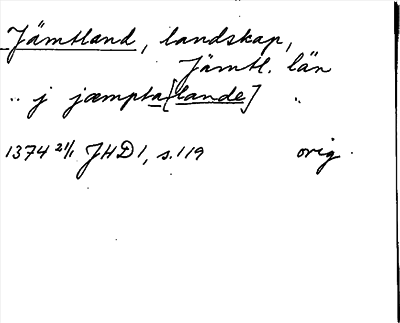 Jämtland, landskap,
Jämtl. län
.. j jæmpta[lande] ..
1374 21/1 JHD1, s.119 orig.